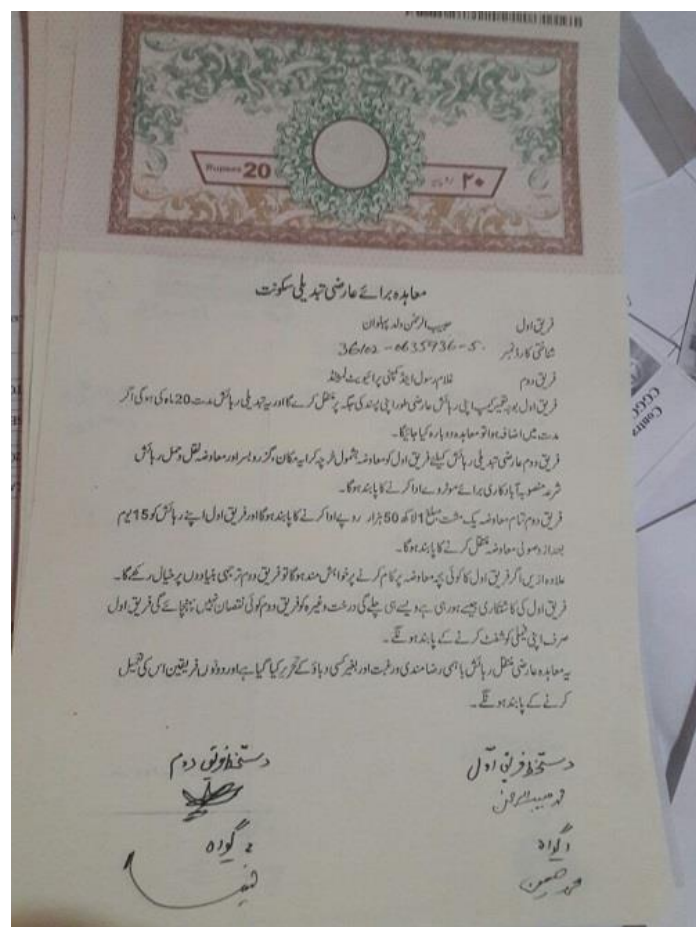 Rupees 20
۲۰ روپیہ
معاہدہ برائے عارضی تبدیلی سکونت
فریق اول حبیب الرحمٰن ولد پہلوان
شناختی کارڈ نمبر 36102-0635936-5
فریق دوم غلام رسول اینڈ کمپنی پرائیویٹ لمیٹڈ
فریق اول بوجہ تعمیر کیمپ اپنی رہائش عارضی طور اپنی پسند کی جگہ پر منتقل کرے گا اور یہ تبدیلی رہائش مدت 20 ماہ کی ہوگی اگر
مدت میں اضافہ ہوا تو معاہدہ دوبارہ کیا جائیگا۔
فریق دوم عارضی تبدیلی رہائش کیلئے فریق اول کو معاوضہ بشمول خرچہ کرایہ مکان، گزر و بسر اور معاوضہ نقل و حمل رہائش
شرعہ منصوبہ آبادکاری برائے موٹروے ادا کرنے کا پابند ہوگا۔
فریق دوم تمام معاوضہ یک مشت مبلغ 1 لاکھ 50 ہزار روپے ادا کرنے کا پابند ہوگا اور فریق اول اپنے رہائش کو 15 یوم
بعد از وصولی معاوضہ منتقل کرنے کا پابند ہوگا۔
علاوہ ازیں اگر فریق اول کا کوئی بچہ معاوضہ پر کام کرنے پر خواہش مند ہوگا تو فریق دوم ترجیحی بنیادوں پر خیال رکھے گا۔
فریق اول کی کاشتکاری جیسے ہو رہی ہے ویسے ہی چلے گی درخت وغیرہ کو فریق دوم کوئی نقصان نہیں پہنچائے گی فریق اول
صرف اپنی فیملی کو شفٹ کرنے کے پابند ہونگے۔
یہ معاہدہ عارضی منتقل رہائش باہمی رضامندی ورغبت اور بغیر کسی دباؤ کے تحریر کیا گیا ہے اور دونوں فریقین اس کی تعمیل
کرنے کے پابند ہونگے۔
دستخط فریق اول دستخط فریق دوم
محمد حبیب الرحمن
1 گواہ 2 گواہ
محمد حسین